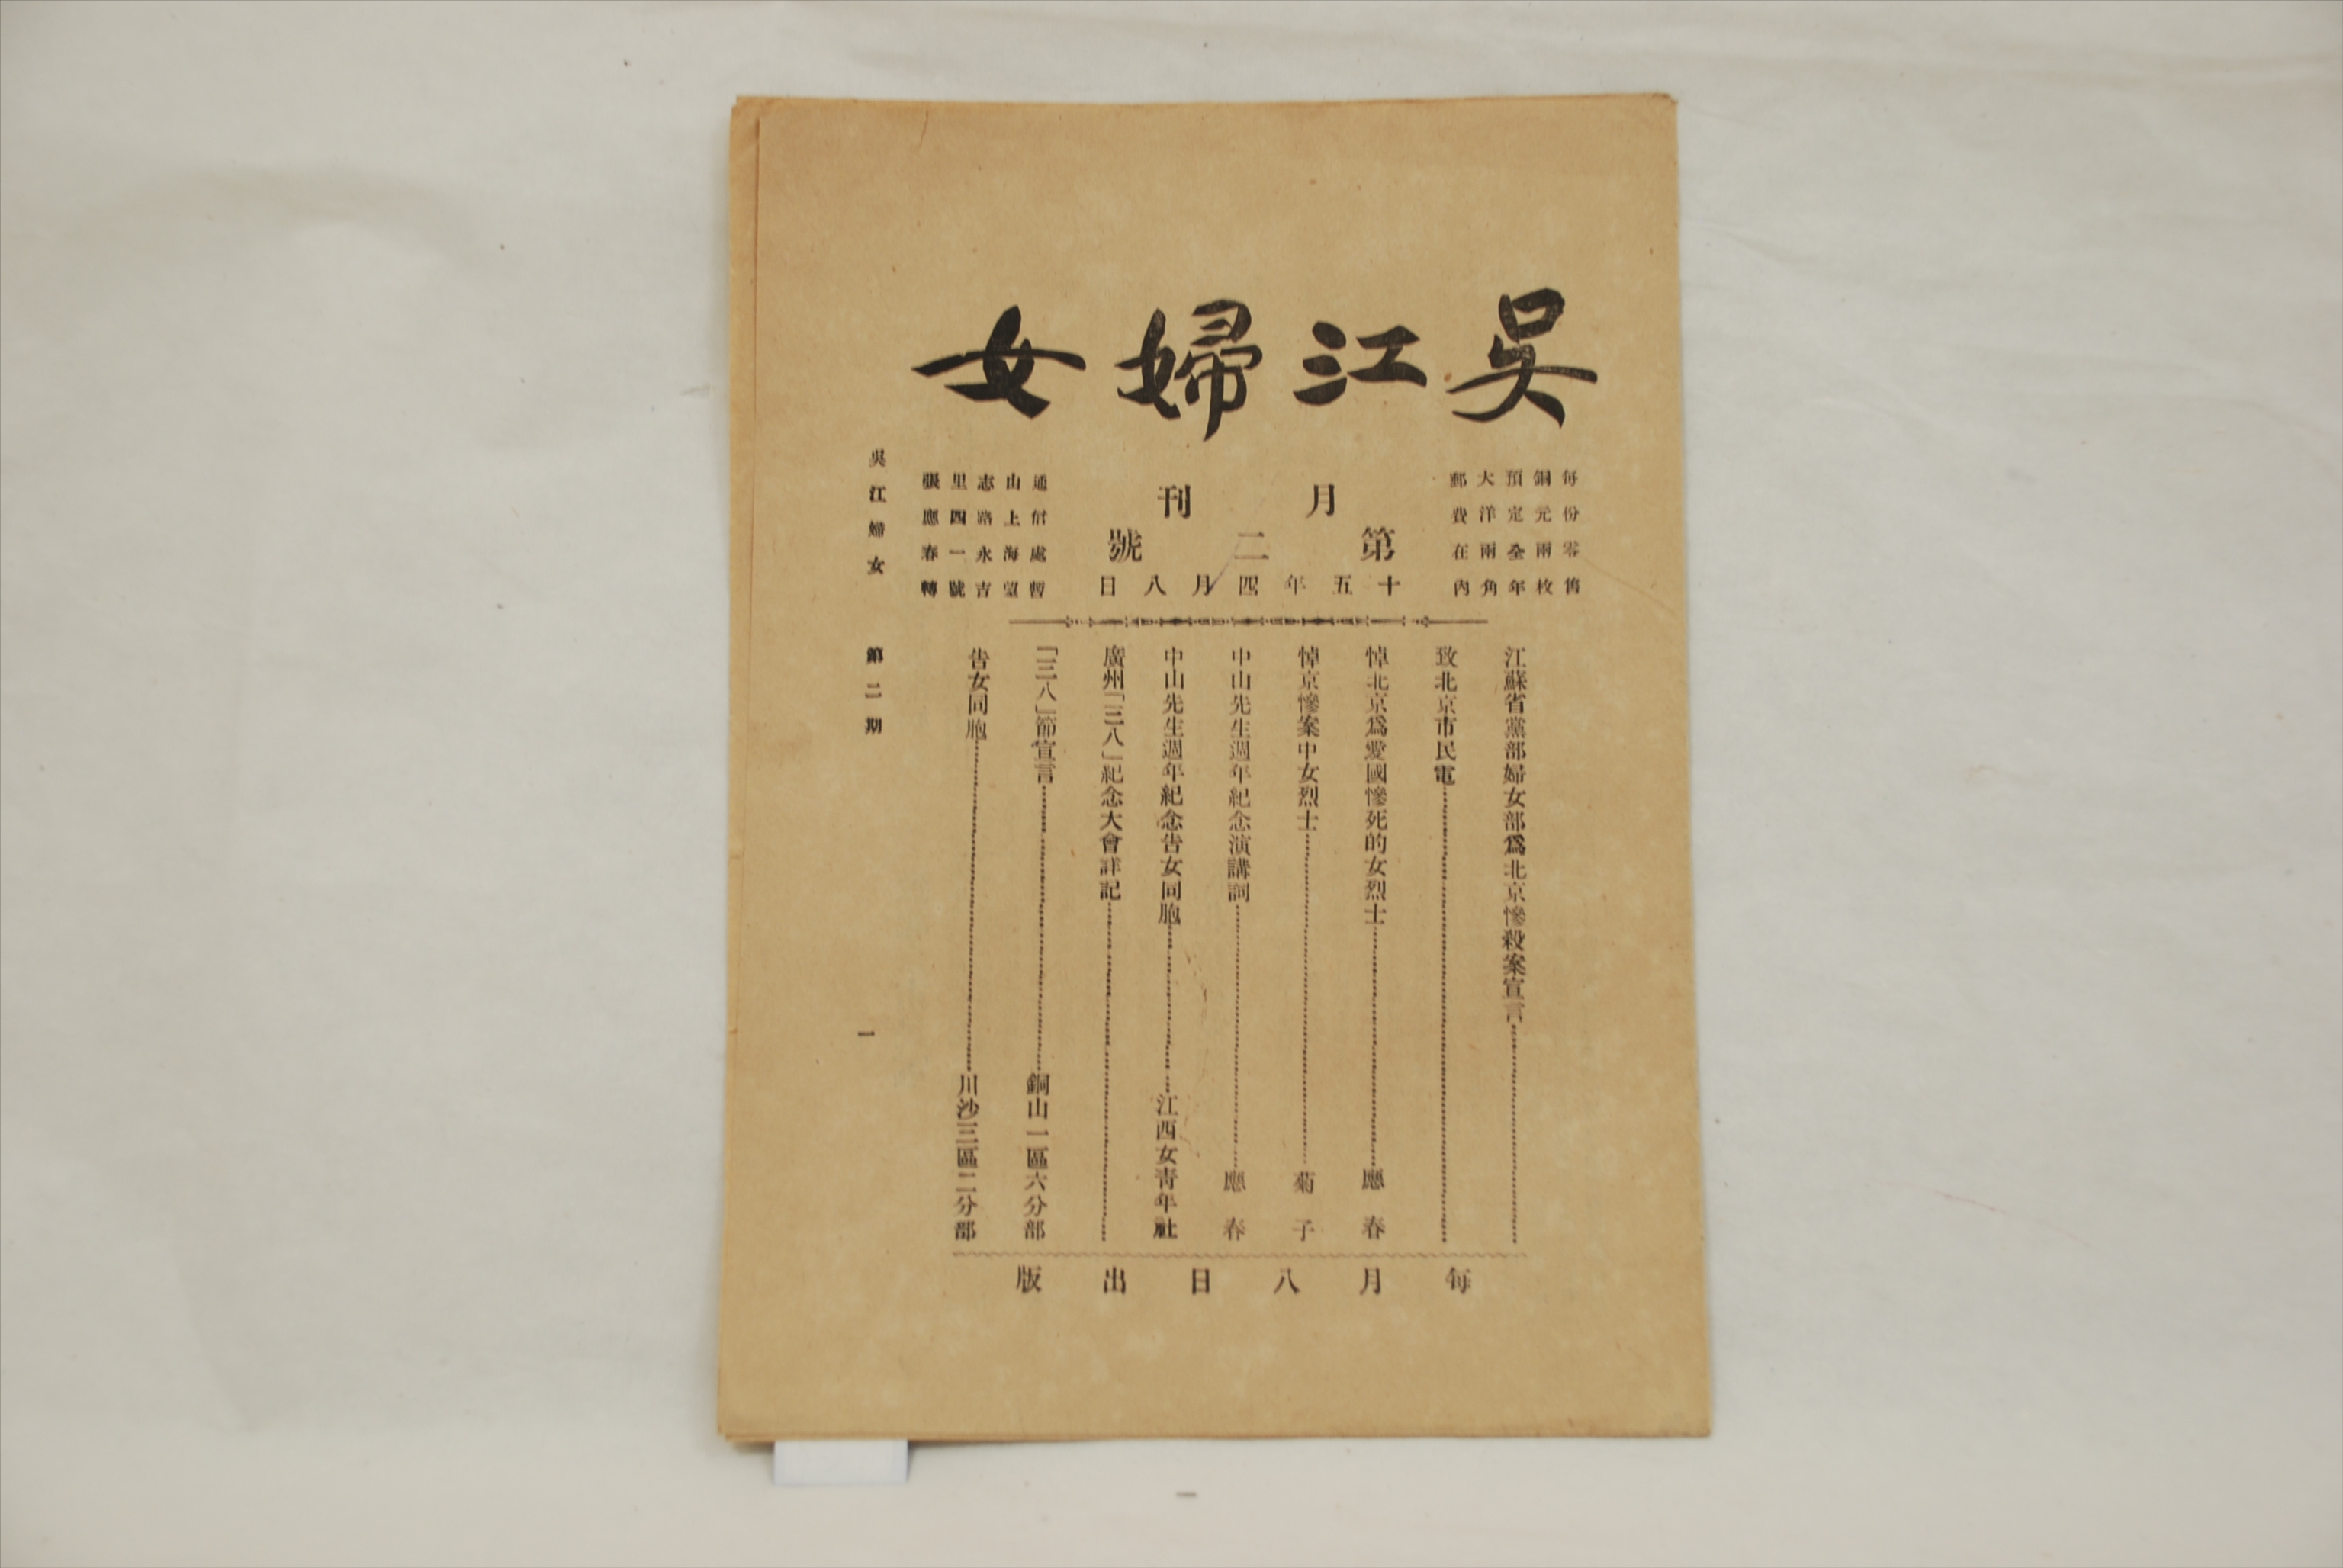 吳江婦女
月刊
第二號
十五年四月八日
每份零售
銅元兩枚
預定全年
大洋兩角
郵費在內
通信處暫
山上海望
志路永吉
里四一號
張應春轉
江蘇省黨部婦女部爲北京慘殺案宣言
致北京市民電
悼北京爲愛國慘死的女烈士 應春
悼京慘案中女烈士 菊子
中山先生週年紀念演講詞 應春
中山先生週年紀念告女同胞 江西女靑年社
廣州「三八」紀念大會詳記
「三八」節宣言 銅山一區六分部
告女同胞 川沙三區二分部
每月八日出版
吳江婦女 第二期 一